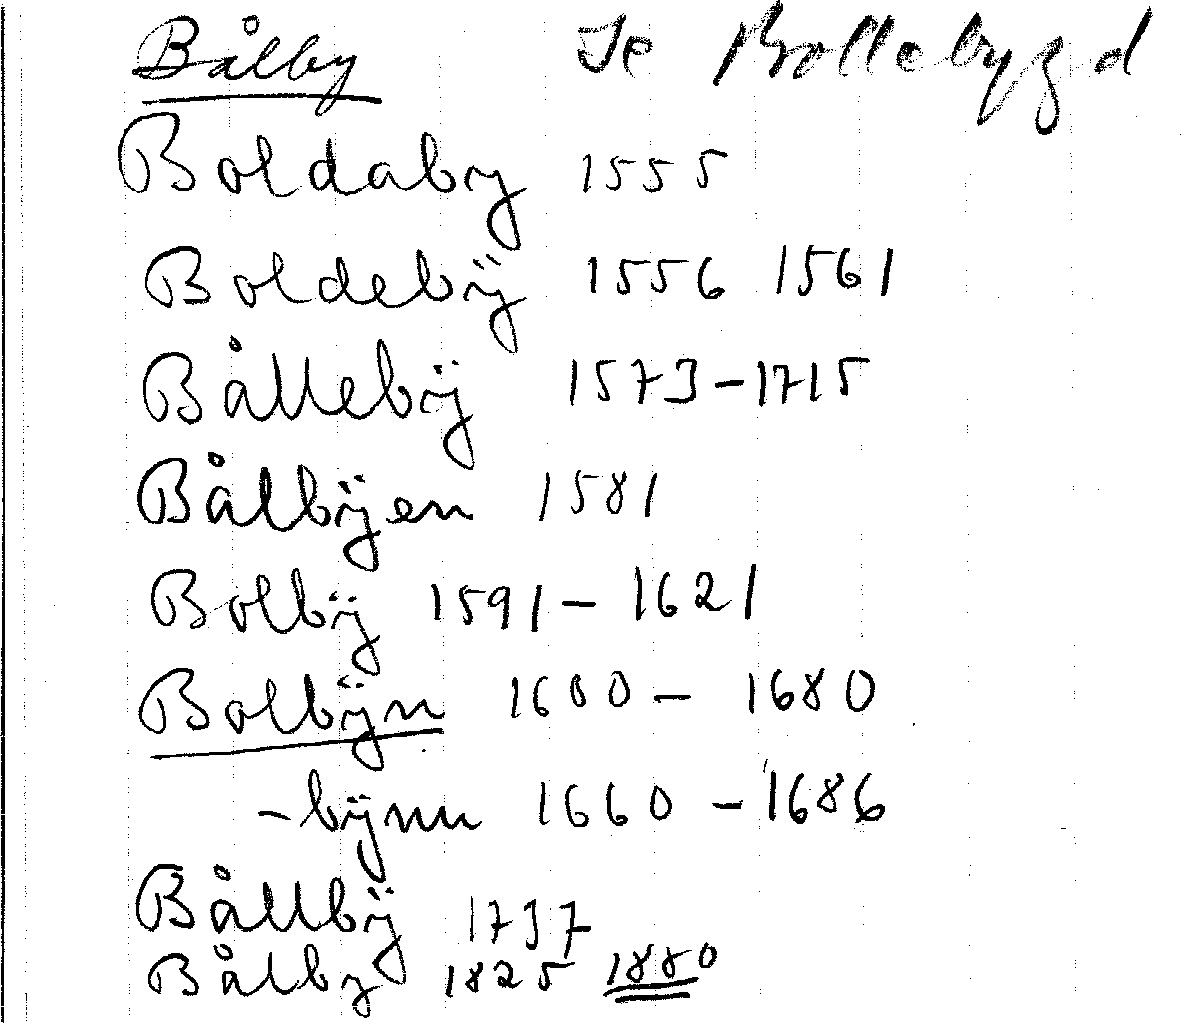 Bålby Se Bollebygd
Boldaby 1555
Boldebÿ 1556 1561
Bållebÿ 1573-1715
Bålbÿen 1581
Bolbÿ 1591-1621
Bolbÿn 1600-1680
-bÿnn 1660-1686
Bållbÿ 1737
Bålby 1825 1880